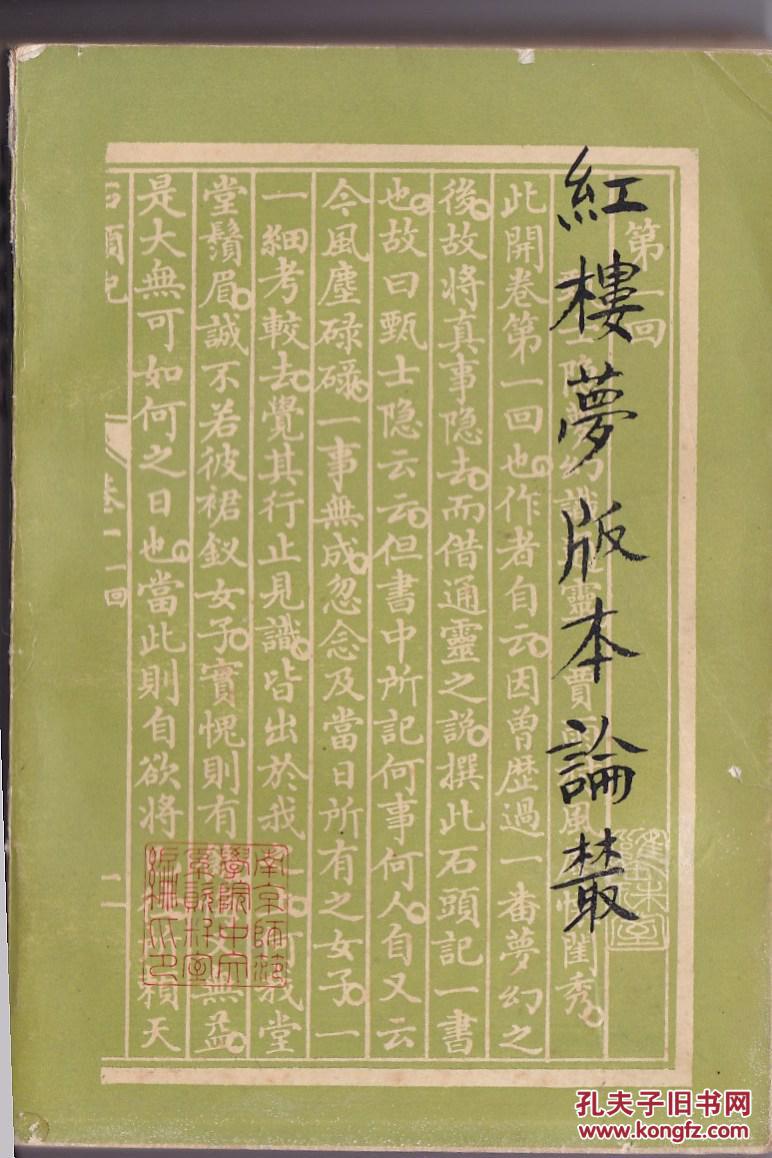 紅樓夢版本論叢
第一回
此開卷第一回也作者自云因曾歴過一番夢幻之
後故將真事隐去而借通靈之説撰此石頭記一書
也故曰甄士隐云云但書中所記何事何人自又云
今風塵碌碌一事無成忽念及當日所有之女子一
一細考較去覺其行止見識皆出於我
堂鬚眉誠不若彼裙釵女子實愧則有
是大無可如何之日也當此則自欲將
石頭記
卷一
南京師範
學院中文
系資料室
孔夫子旧书网
www.kongfz.com